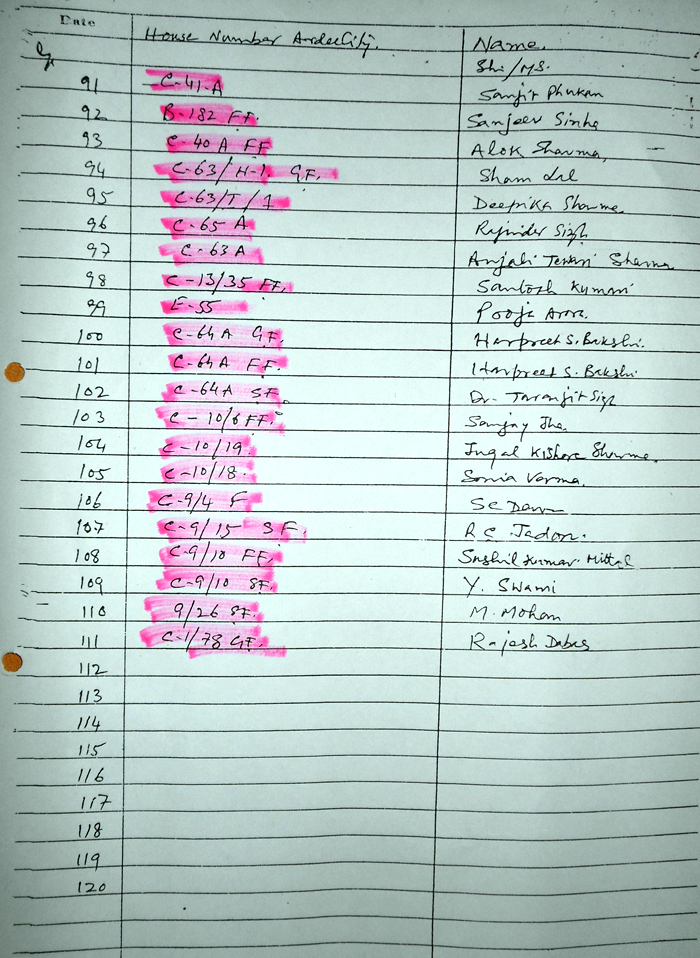 Date House Number ArdeeCity. Name.
Shi/MS.
91 C-41-A Sanjit Phukan
92 B-182 FF. Sanjeev Sinha
93 C-40 A FF Alok Sharma,
94 C-63/H-1. GF. Sham Lal
95 C-63/T/1 Deepika Sharma.
96 C-65 A Rajinder Singh
97 C-63A Anjali Tewari Sharma
98 C-13/35 FF. Santosh Kumari
99 E-55 Pooja Arora.
100 C-64A GF. Harpreet S. Bakshi.
101 C-64A FF. Harpreet S. Bakshi
102 C-64A SF. Dr. Taranjit Singh
103 C-10/6 FF. Sanjay Jha.
104 C-10/19. Jugal Kishore Sharma.
105 C-10/18. Sonia Varma.
106 C-9/4 F SC
107 C-9/15 SF. R.C. Jadon.
108 C-9/10 FF. Sushil Kumar Mittal
109 C-9/10 SF. Y. Swami
110 9/26 SF. M. Mohan
111 C-1/78 GF. Rajesh Dabas
112
113
114
115
116
117
118
119
120